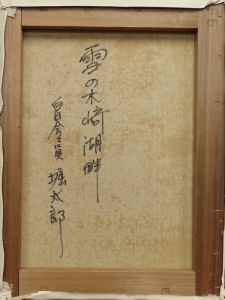 雪の木崎湖畔
白日会会員 堀太郎